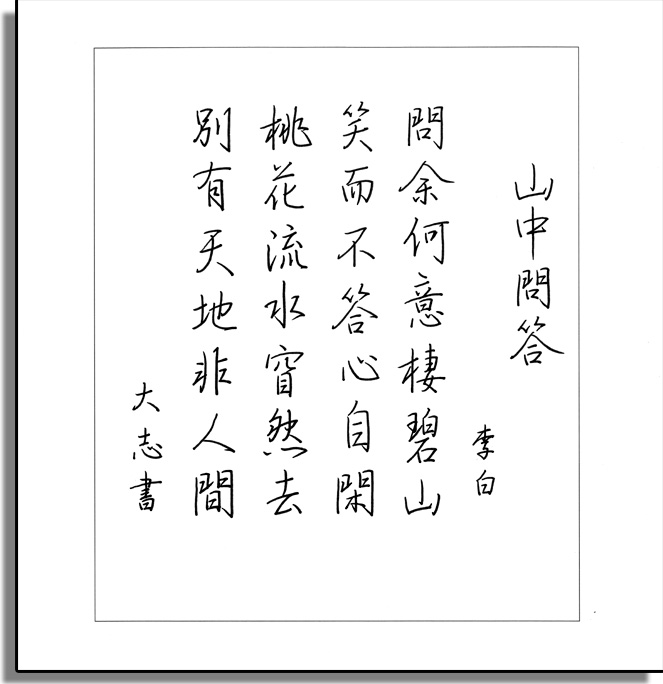 山中問答
李白
問余何意棲碧山
笑而不答心自閑
桃花流水窅然去
別有天地非人間
大志書